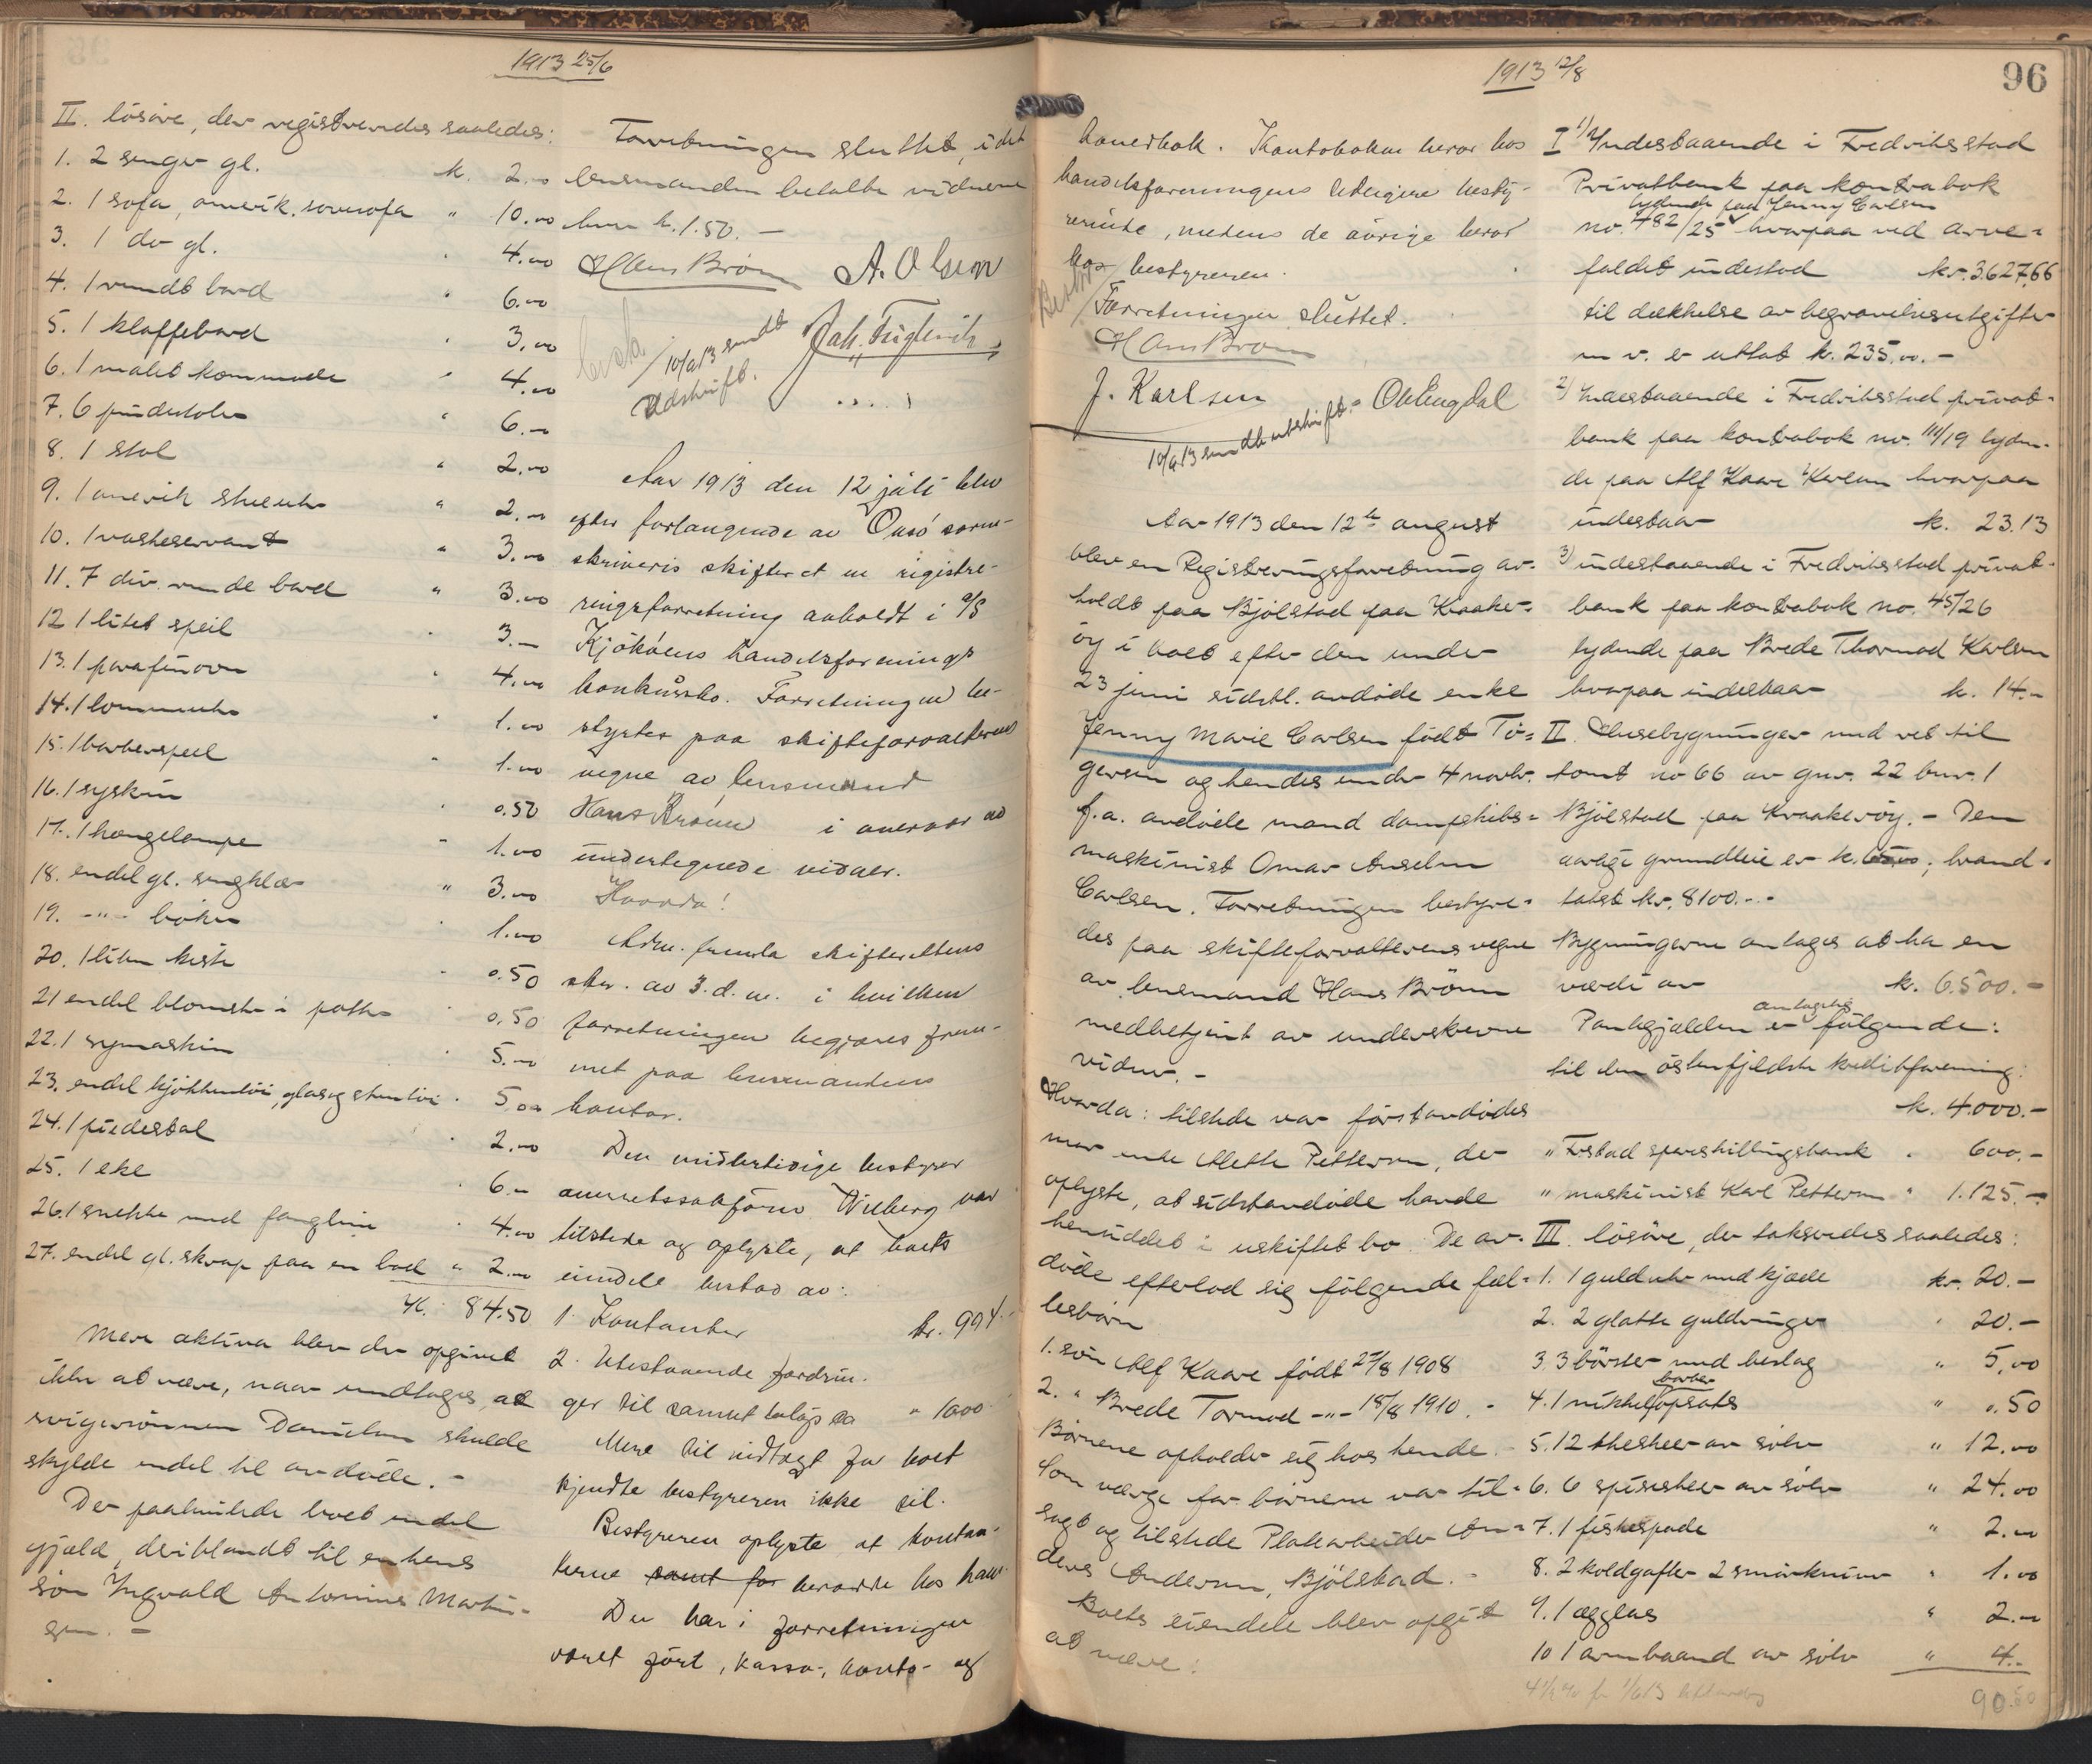 1913 25/6
II. løsøre, der registreredes saaledes:
1. 2 senger gl. k. 2.00
2. 1 sofa, amerik. sovesofa " 10.00
3. 1 do gl. " 4.00
4. 1 rundt bord " 6.00
5. 1 klaffebord " 3.00
6. 1 malet kommode " 4.00
7. 6 pindestoler " 6.–
8. 1 stol " 2.00
9. 1 amerik stueuhr " 2.00
10. 1 vaskeservant " 3.00
11. 7 div. runde bord " 3.00
12 1 litet speil " 3.–
13. 1 parafinovn " 4.00
14. 1 lommeuhr " 1.00
15. 1 barberspeil " 1.00
16. 1 syskrin " 0.50
17. 1 hængelampe " 1.00
18. endel gl. sengklær " 3.00
19. –"– bøker " 1.00
20. 1 liten kiste " 0.50
21 endel blomster i potter " 0.50
22. 1 symaskin " 5.00
23. endel kjøkkentøi, glas og stentøi " 5.00
24. 1 piedestal " 2.00
25. 1 eke " 6.–
26. 1 snekke med fanglin " 4.00
27. endel gl. skrap paa en bod " 2.00
Kr. 84.50
Mere aktiva blev der opgivet
ikke at være, naar undtages, at
svigersønnen Danielsen skulde
skylde endel til avdøde. –
Der paahvilede boet endel
gjæld, deriblandt til enkens
søn Ingvald Antonius Martin-
sen. –
Forretningen sluttet, idet
lensmanden betalte vidnerne
hver k. 1.50. –
Hans Brønn A. Olsen
Joh. Fuglevik
10/9 13 sendt
Udskrift.
Aar 1913 den 12 juli blev
efter forlangende av Onsø soren-
skriveris skifteret en registre-
ringsforretning avholdt i A/S
Kjøkøens handelsforenings
konkursbo. Forretningen be-
styrtes paa skifteforvalterens
vegne av lensmand
Hans Brønn i overvær av
undertegnede vidner.
Hvorda!
Adm. fremla skifterettens
skr. av 3. d. m. i hvilken
forretningen begjæres frem-
met paa lensmandens
kontor.
Den midlertidige bestyrer
overretssakfører Wiberg var
tilstede og oplyste, at boets
eiendele bestod av:
1. Kontanter kr. 994.–
2. Utestaaende fordrin-
ger til samlet beløp ca " 1000
Mere til indtægt for boet
kjendte bestyreren ikke til.
Bestyreren oplyste at kontan-
terne samt for beroede hos ham
Der har i forretningen
været ført, kassa-, konto- og
1913 12/8
96
hoverbok. Kontoboken beror hos
handelsforeningens tidligere besty-
rerinde, medens de øvrige beror
hos bestyreren.
Forretningen sluttet.
Hans Brønn
J. Karlsen Ole Engdal
10/9 13 sendt utskrift. –
Aar 1913 den 12te august
blev en Registreringsforretning av-
holdt paa Bjølstad paa Kraake-
øy i boet efter den under
23 juni sidstl. avdøde enke
Jenny Marie Carlsen født Tø-
gersen og hendes under 4 novbr.
f.a. avdøde mand dampskibs-
maskinist Omar Anselm
Carlsen. Forretningen bestyre-
des paa skifteforvalterens vegne
av lensmand Hans Brønn
medbetjent av underskrevne
vidner. –
Hvorda: tilstede var førstavdødes
mor enke Mette Pettersen, der
oplyste, at sidstavdøde havde
hensiddet i uskiftet bo. De av-
døde efterlod sig følgende fæl-
lesbørn
1. søn Alf Kaare født 27/8 1908
2. " Brede Tormod –"– 18/8 1910. –
Børnene opholder sig hos hende. –
Som værge for børnene var til-
sagt og tilstede Platearbeider An-
ders Andersen, Bjølstad. –
Boets eiendele blev opgit
at være:
I 1) Indestaaende i Fredriksstad
Privatbank paa kontrabok
lydende paa Jenny Carlsen
no. 482/25 hvorpaa ved arve-
faldet indestod kr. 3627,66
til dækkelse av begravelsesutgifter
m v. er uttat k. 235.00. –
2) Indestaaende i Fredriksstad privat-
bank paa kontrabok no. 111/19 lyden-
de paa Alf Kaare Karlsen hvorpaa
indestaar k. 23.13
3) indestaaende i Fredriksstad privat-
bank paa kontrabok no. 45/26
lydende paa Brede Thormod Karlsen
hvorpaa indestaar k. 14.–
II. Husebygninger med ret til
tomt no 66 av gnr. 22 bnr. 1
Bjølstad paa Kraakerøy. – Den
aarlige grundleie er k. ; brand-
takst kr. 8100.–.
Bygningerne antages at ha en
værdi av k. 6.500.–
Pantegjælden er antagelig følgende:
til den østenfjeldske kreditforening:
k. 4000.–
" Frstad spareskillingsbank " 600.–
" maskinist Karl Pettersen " 1.125.–
III. løsøre, der takseredes saaledes:
1. 1 guldur med kjæde kr. 20.–
2. 2 glatte guldringer " 20.–
3 3 børster med beslag " 5,00
4. 1 nikkel barberopsats " 0.50
5. 12 theskeer av sølv " 12.00
6. 6 spiseskeer av sølv " 24.00
7. 1 fiskespade " 2.00
8. 2 koldgafler 2 smørkniver " 1.00
9. 1 ægglas " 2.00
10 1 armbaand av sølv " 4.–
90.50